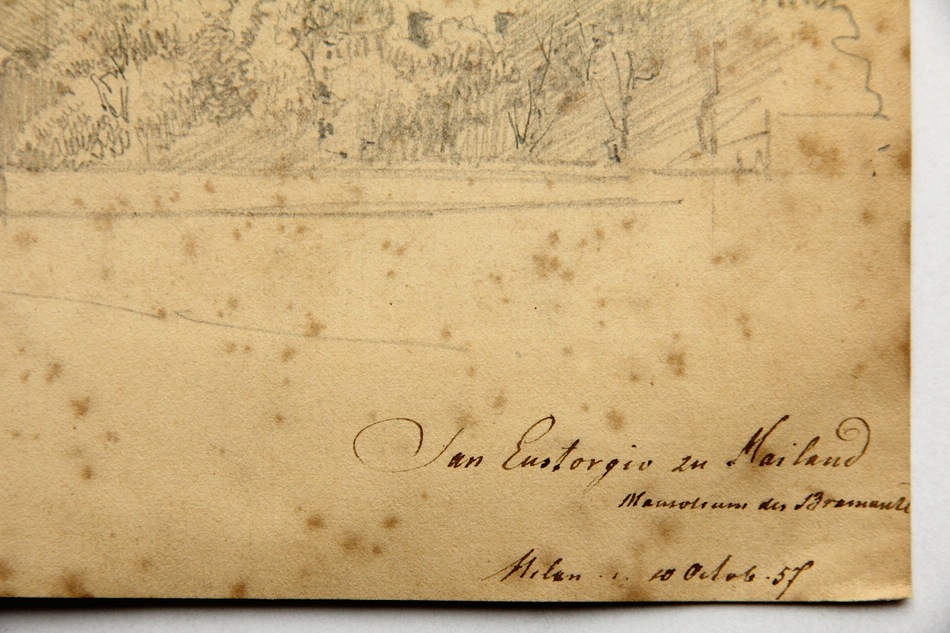 San Eustorgio zu Mailand
Mausoleum des Bramante
Milan 10 Octob. 57